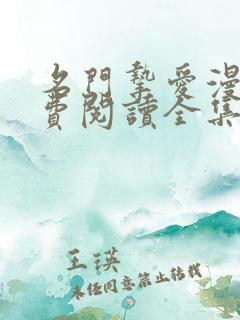 名門摯愛漫
費閱讀全集
王瑛
未经同意禁止转载